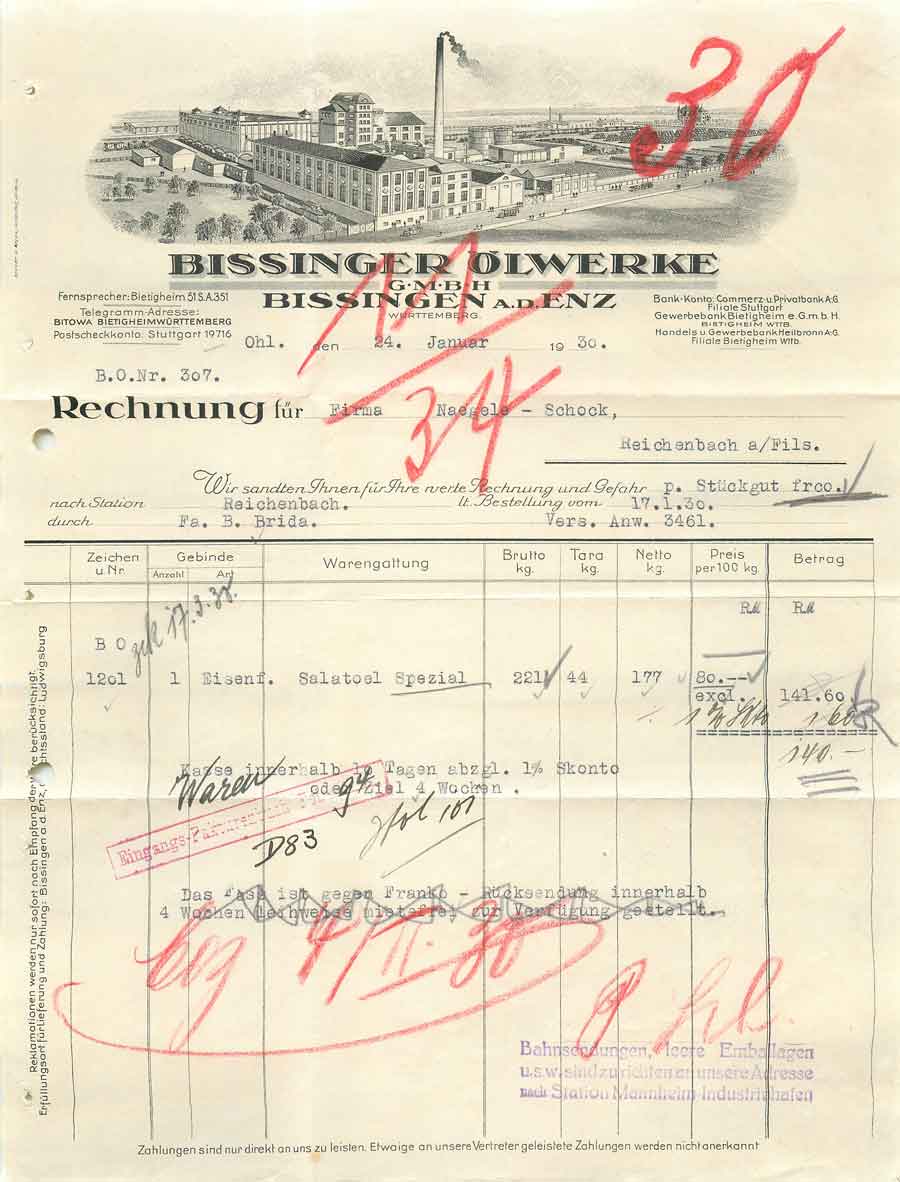 30
BISSINGER ÖLWERKE
G·M·B·H
BISSINGEN A.D. ENZ
WÜRTTEMBERG.
Fernsprecher: Bietigheim 51 S.A. 351
Telegramm-Adresse:
BITOWA BIETIGHEIMWÜRTTEMBERG
Postscheckkonto: Stuttgart 19716
Bank-Konto: Commerz-u.Privatbank A:G
Filiale Stuttgart
Gewerbebank Bietigheim e.G.m.b.H.
BIETIGHEIM WTTB.
Handels u Gewerbebank Heilbronn A.G.
Filiale Bietigheim Wttb.
11
34
Ohl. den 24. Januar 1930.
B.O.Nr. 307.
Rechnung für Firma Naegele - Schock,
Reichenbach a/Fils.
Wir sandten Ihnen für Ihre werte Rechnung und Gefahr p. Stückgut frco.
nach Station Reichenbach. lt. Bestellung vom 17.1.30.
durch Fa. B. Brida. Vers. Anw. 3461.
Zeichen u. Nr. Gebinde Anzahl Art Warengattung Brutto kg. Tara kg. Netto kg. Preis per 100 kg. Betrag
RM RM
17.3.30.
B O
1201 1 Eisenf. Salatoel Spezial 221 44 177 80.-- 
excl. 141.60
1 % Skto 1 60
140.-
Kasse innerhalb 10 Tagen abzgl. 1% Skonto
oder Ziel 4 Wochen.
Waren
94
Eingangs-Fakturenbuch
D83
101
Das Fass ist gegen Franko - Rücksendung innerhalb
4 Wochen leihweise mietefrei zur Verfügung gestellt.
bez 4/II. 30
Bahnsendungen, leere Emballagen
u.s.w. sind zu richten an unsere Adresse
nach Station Mannheim-Industriehafen
Reklamationen werden nur sofort nach Empfang der Ware berücksichtigt
Erfüllungsort für Lieferung und Zahlung: Bissingen a.d. Enz, Gerichtsstand: Ludwigsburg
Zahlungen sind nur direkt an uns zu leisten. Etwaige an unsere Vertreter geleistete Zahlungen werden nicht anerkannt